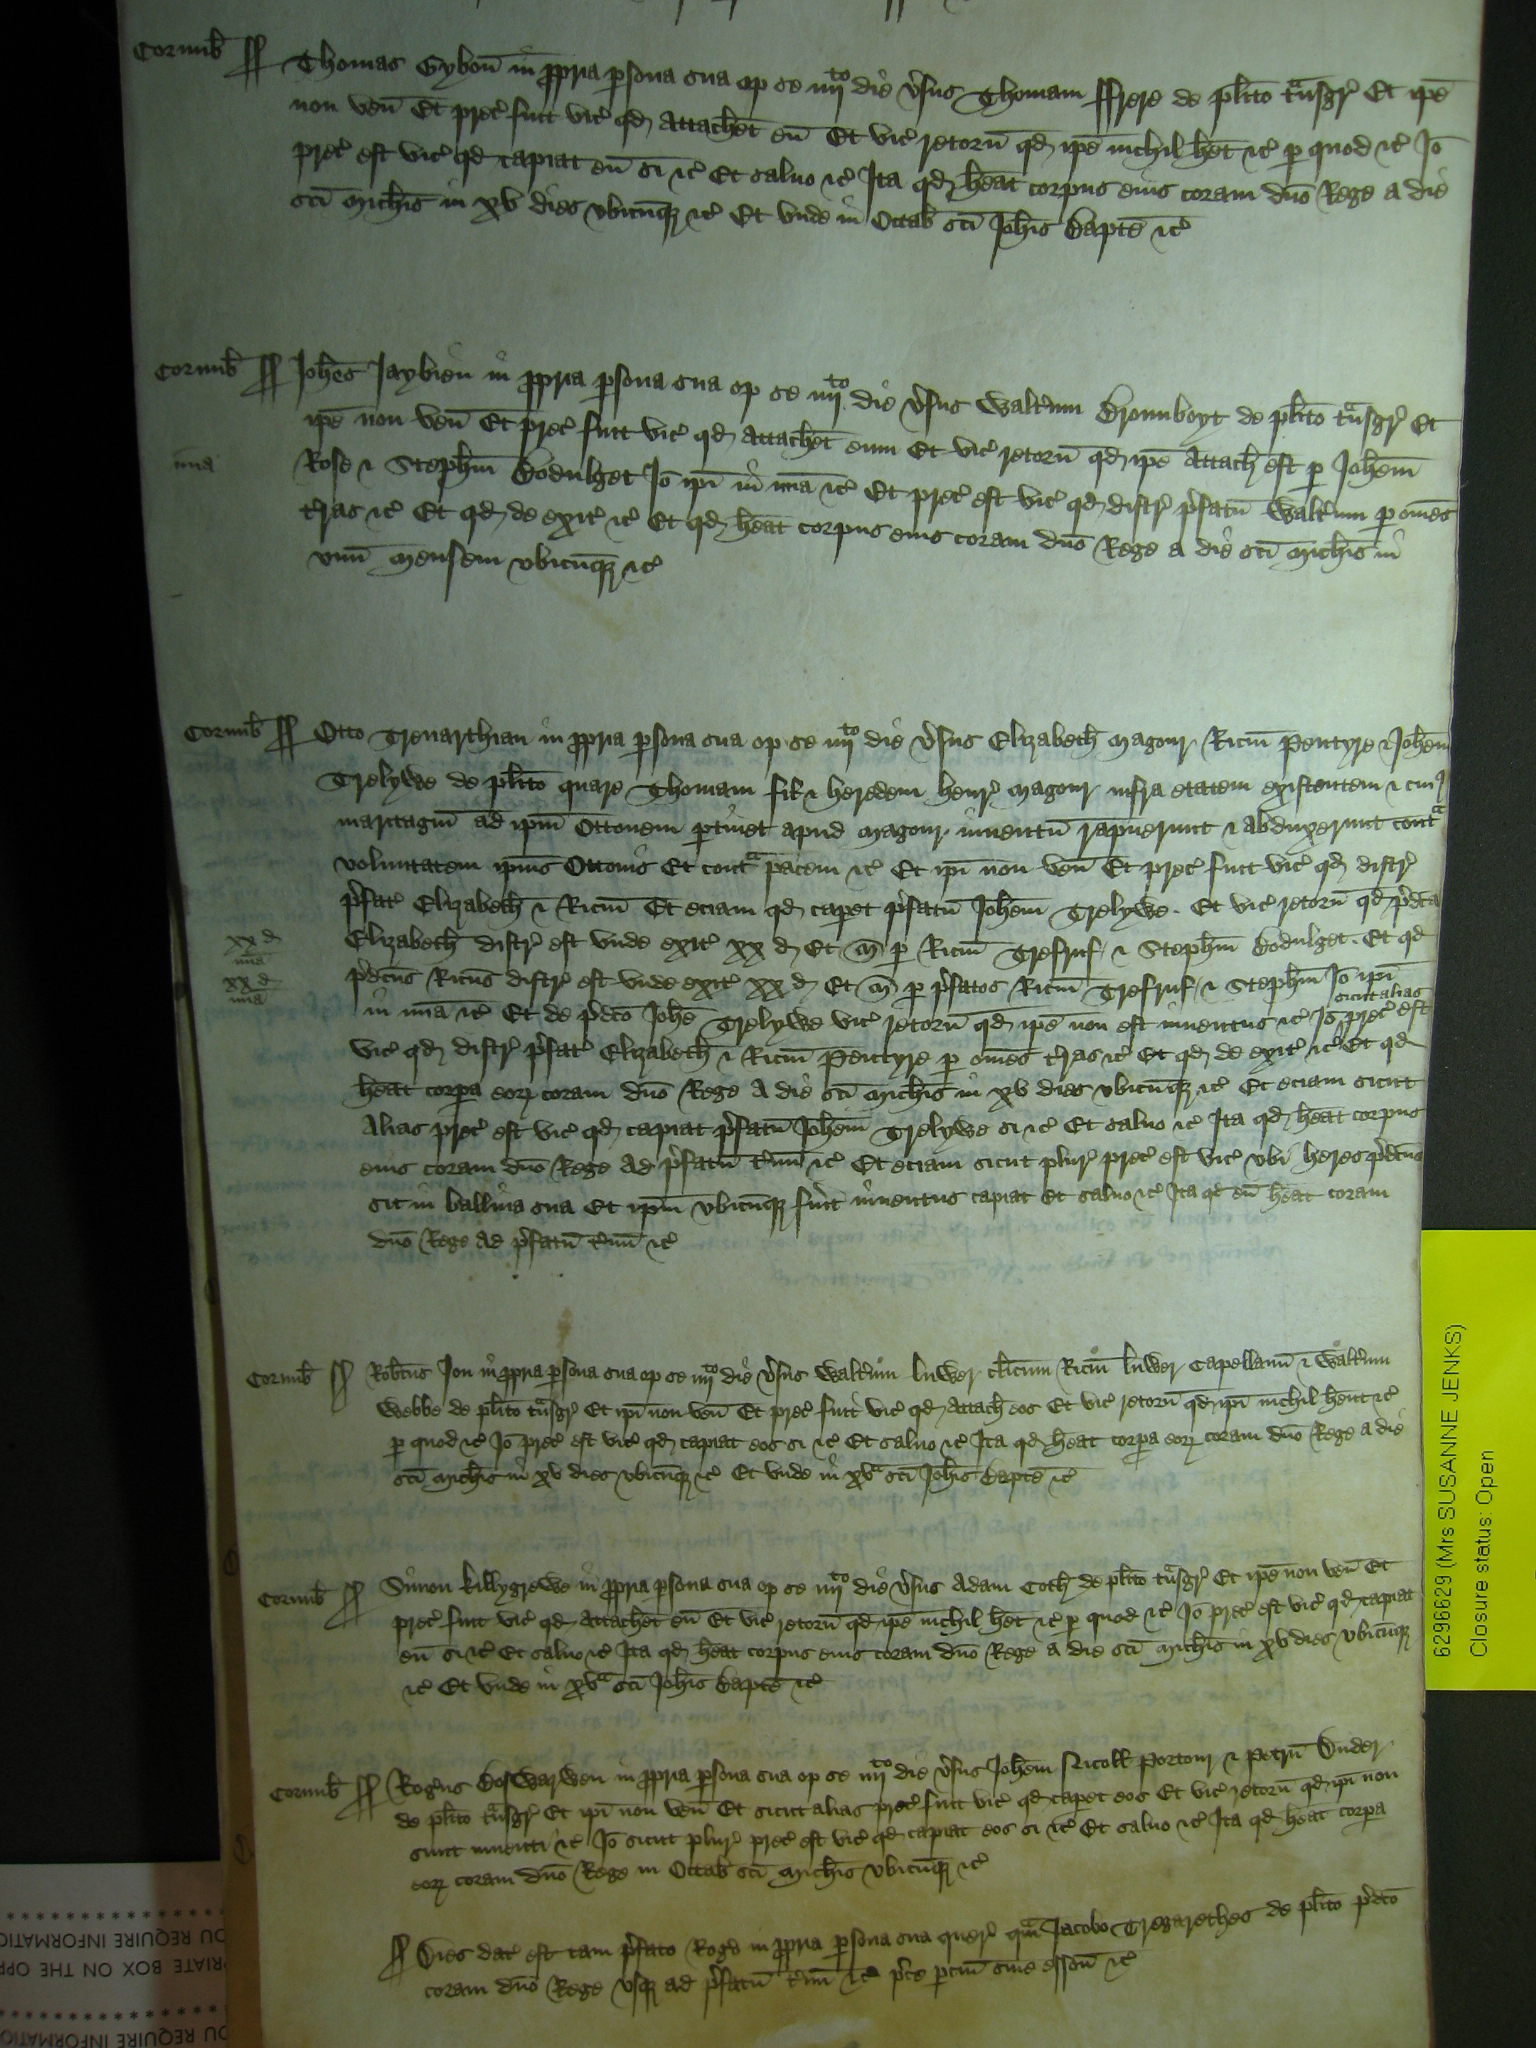 Cornub ss Thomas Gybon in ppria psona sua op se iiij to die vsus Thomam ffrere de plito tnsgr Et ipe
non ven Et prec fuit vic qd attachet eu Et vic retorn qd ipe nichil het ic p quod ic Io
prec est vic qd capiat eu si ic Et saluo ic Ita qd heat corpus eius coram dno Rege a die
sci Michis in xv dies vbicuq ic Et vnde in Octab sci Johis Bapte ic
Cornub ss Johes Jaybien in ppria psona sua op se iiij to die vsus Waltum Bronnboyt de plito tnsgr Et
ipe non ven Et prec fuit vic qd attachet eum Et vic retorn qd ipe attach est p Johem
mia
Rose & Stephm Bodulget Io ipi in mia ic Et prec est vic qd distr pfatu Waltum p omes
tras ic Et qd de exit ic Et qd heat corpus eius coram dno Rege a die sci Michis in
vnu mensem vbicuq ic
Cornub ss Otto Trenarthian in ppria psona sua op se iiij to die vsus Elizabeth Magour Ricm Pentyre & Johem
Trelywe de plito quare Thomam fil & heredem Henr Magour infra etatem existentem & cui
maritagiu ad ipm Ottonem ptinet apud Magour inuentu rapuerunt & abduxerunt contra
voluntatem ipius Ottonis Et contra pacem ic Et ipi non ven Et prec fuit vic qd distr
pfat Elizabeth & Ricm Et eciam qd capet pfatu Johem Trelywe Et vic retorn qd pdca
xx d
mia
Elizabeth distr est vnde exit xx d Et m p Ricm Trefruf & Stephm Bodulget Et qd
xx d
mia
pdcus Ricus distr est vnde exit xx d Et m p pfatos Ricm Trefruf & Stephm Io ipi
in mia ic Et de pdco Johe Trelywe vic retorn qd ipe non est inuentus ic Io sicut alias prec est
vic qd distr pfat Elizabeth & Ricm Pentyre p omes tras ic Et qd de exit ic Et qd
heat corpa eor coram dno Rege a die sci Michis in xv dies vbicuq ic Et eciam sicut
alias prec est vic qd capiat pfatu Johem Trelywe si ic Et saluo ic Ita qd heat corpus
eius coram dno Rege ad pfatu tmu ic Et eciam sicut plur prec est vic vbi heres pdcus
sit in balliua sua Et ipm vbicuq fuit inuentus capiat Et saluo ic Ita qd eu heat coram
dno Rege ad pfatu tmu ic
Cornub ss Robtus Jon in ppria psona sua op se iiij to die vsus Waltum Luwer clicum Ricm Luwer Capellanu & Waltum
Webbe de plito tnsgr Et ipi non ven Et prec fuit vic qd attach eos Et vic retorn qd ipi nichil hent ic
p quod ic Io prec est vic qd capiat eos si ic Et saluo ic Ita qd heat corpa eor coram dno Rege a die
sci Michis in xv dies vbicuq ic Et vnde in xva sci Johis Bapte ic
Cornub ss Simon Killygrewe in ppria psona sua op se iiij to die vsus Adam Coth de plito tnsgr Et ipe non ven Et
prec fuit vic qd attachet eu Et vic retorn qd ipe nichil het ic p quod ic Io prec est vic qd capiat
eu si ic Et saluo ic Ita qd heat corpus eius coram dno Rege a die sci Michis in xv dies vbicuq
ic Et vnde in xva sci Johis Bapte ic
Cornub ss Rogus Boswarwen in ppria psona sua op se iiij to die vsus Johem Nicoll Portour & Petru Duder
de plito tnsgr Et ipi non ven Et sicut alias prec fuit vic qd capet eos Et vic retorn qd ipi non
sunt inuenti ic Io sicut plur prec est vic qd capiat eos si ic Et saluo ic Ita qd heat corpa
eor coram dno Rege in Octab sci Michis vbicuq ic
ss Dies dat est tam pfato Rogo in ppria psona sua quer qm Jacobo Tregarethes de plito pdco
coram dno Rege vsq ad pfatu tmu ic pce pciu sine esson ic
6296629 (Mrs SUSANNE JENKS)
Closure status: Open
OU REQUIRE INFORMATIO
RIATE BOX ON THE OPP
OU REQUIRE INFORMATIO